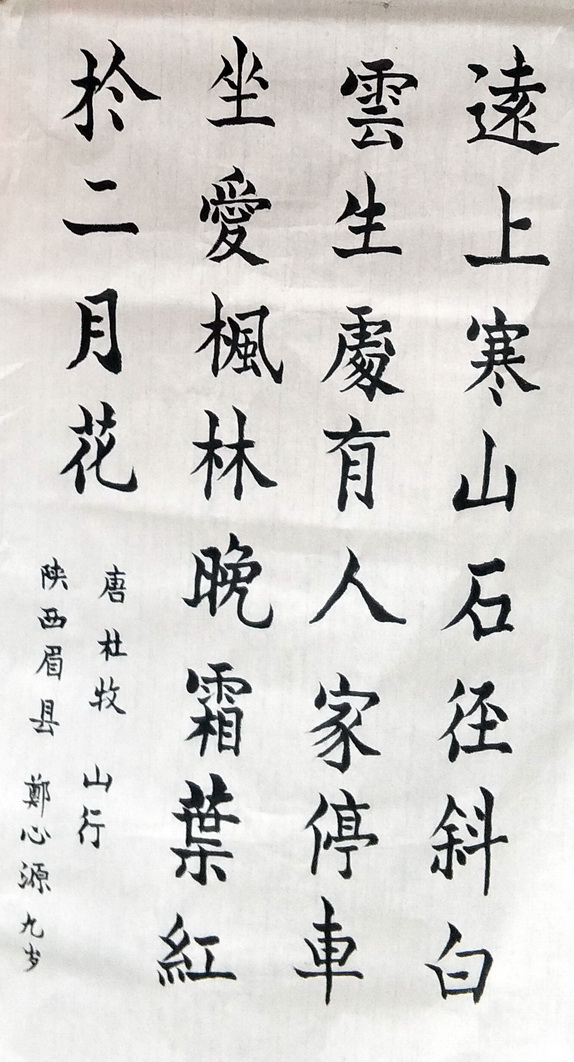 遠上寒山石径斜白
雲生處有人家停車
坐愛楓林晚霜葉紅
於二月花
唐杜牧 山行
陕西眉县 鄭心源九岁